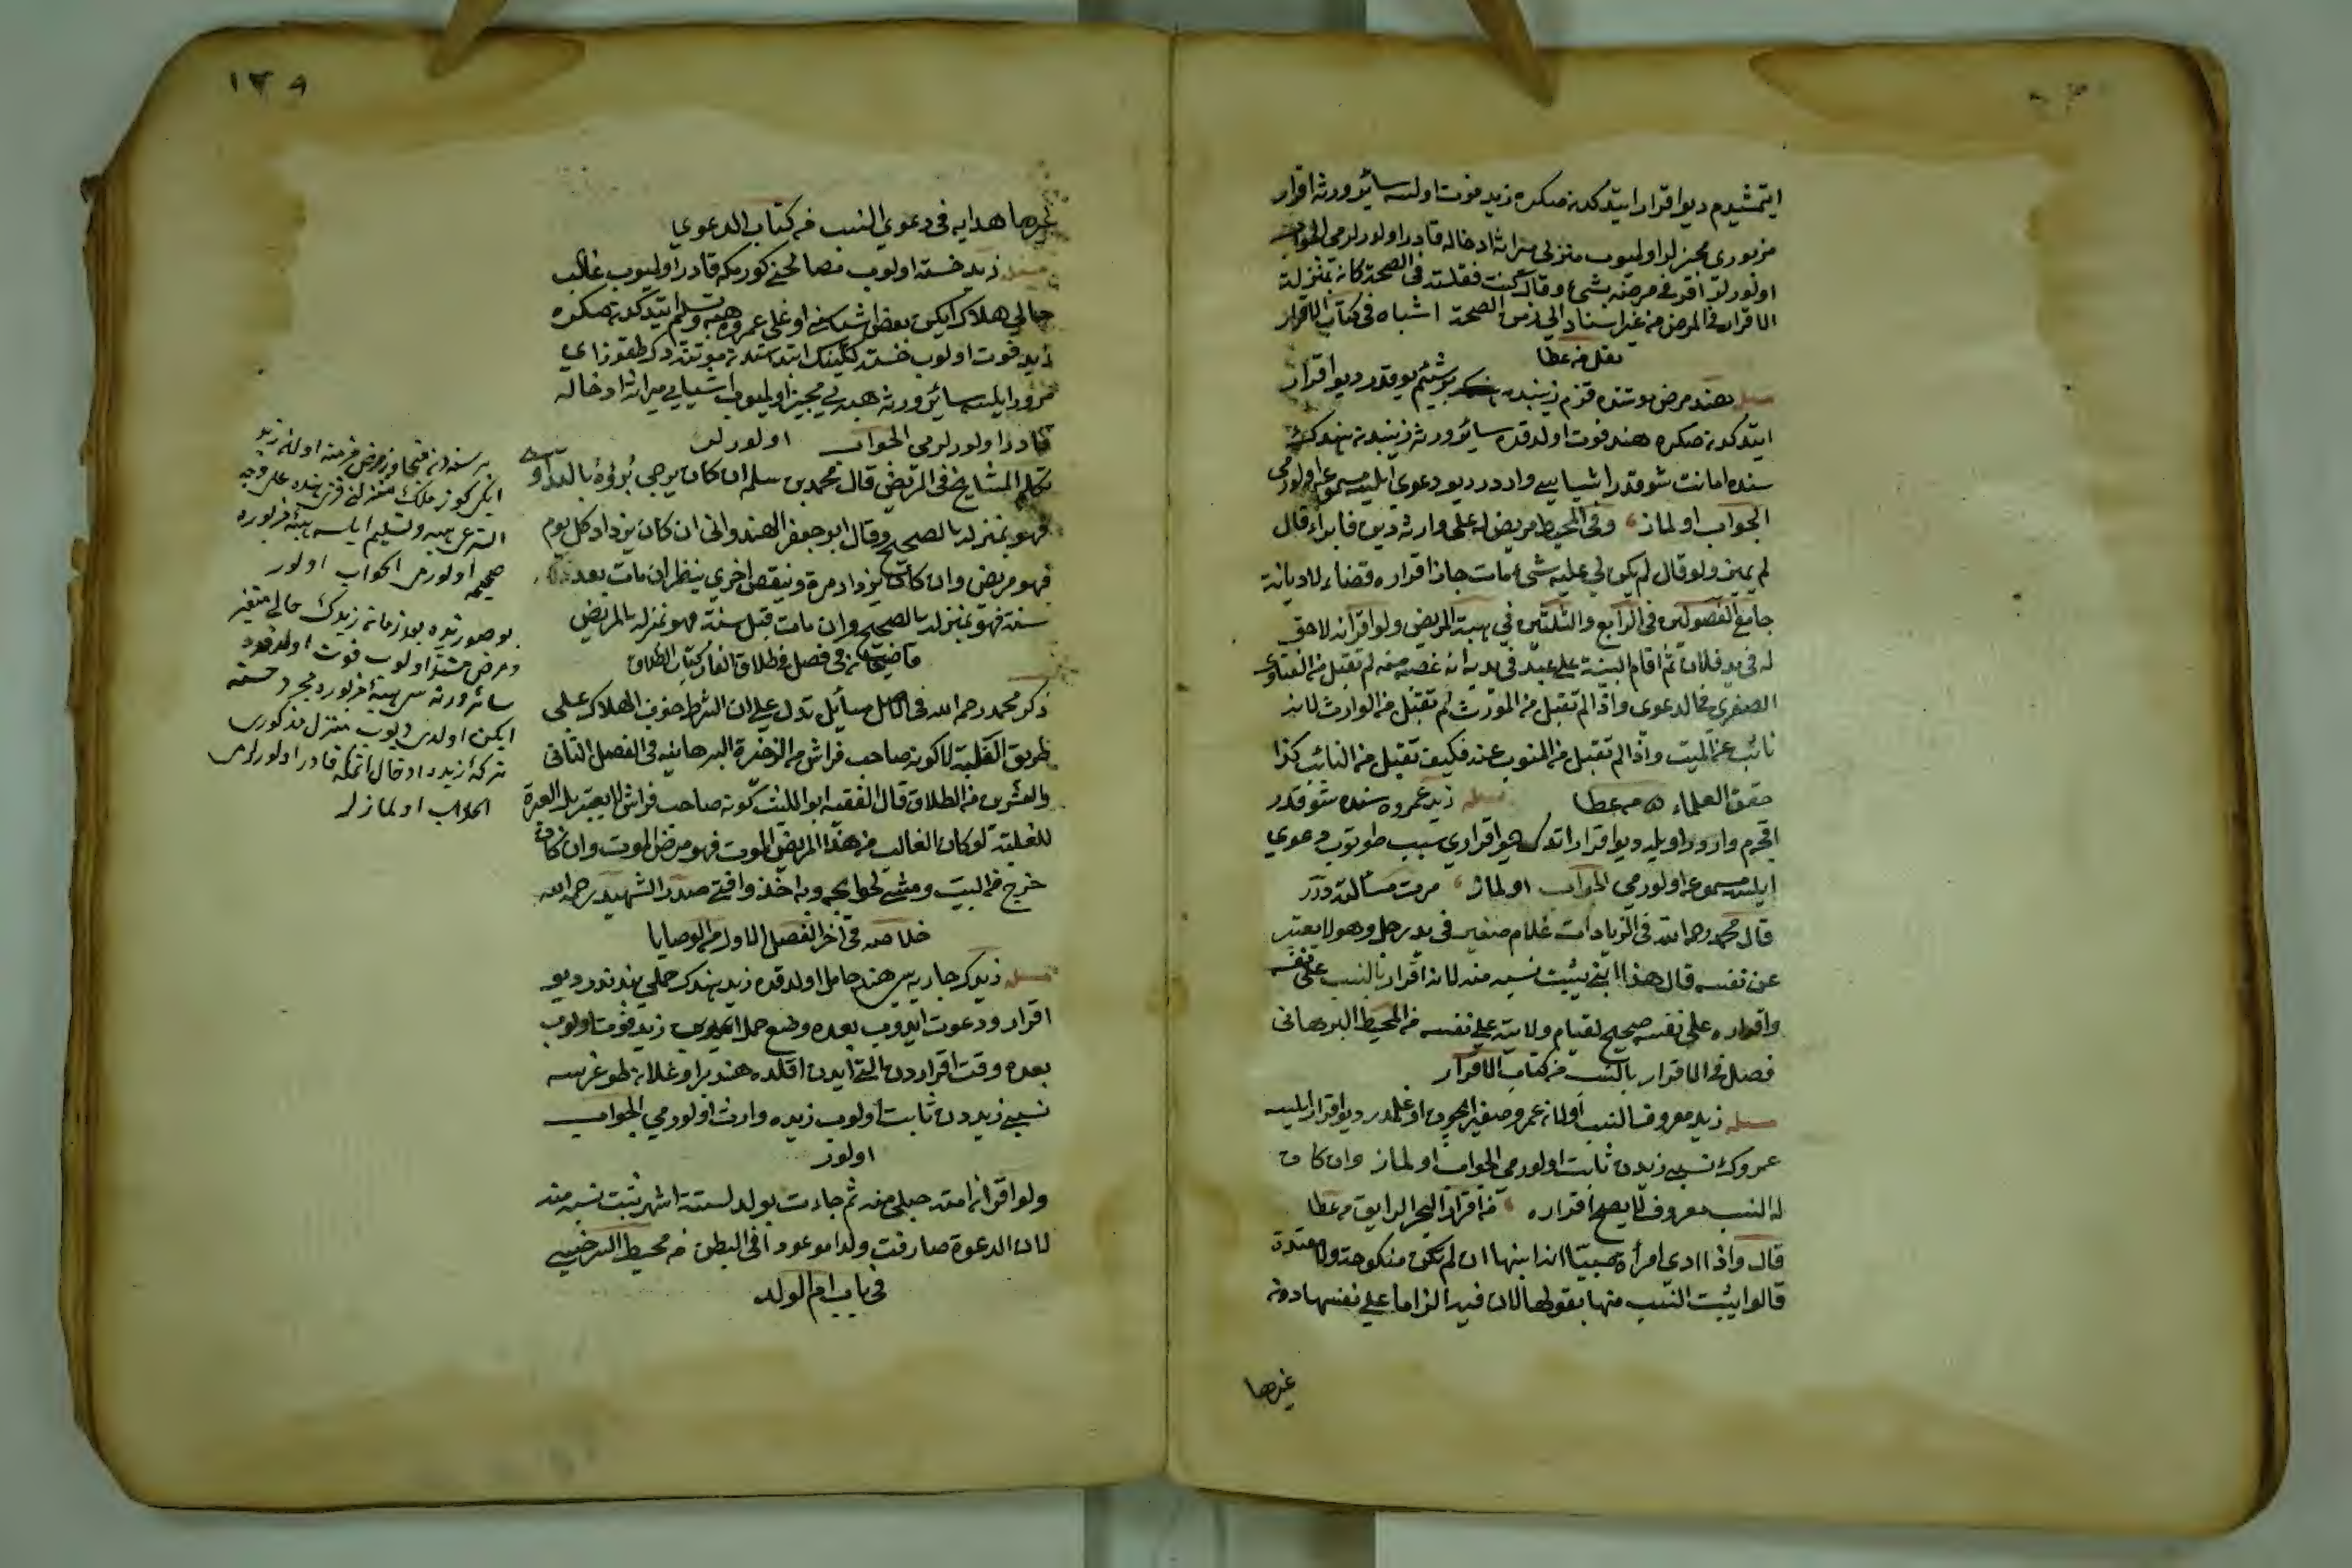 ايتمشيدم ديو اقرار ايتدكدن صكره زيد فوت اولسه سائر ورثه اقرار
مزبورى مجيز لر اوليوب منزلى ميراثه ادخاله قادر اولورلرمى الجواب
اولورلر اقر فى مرضه بشئ وقال كنت فعلته فى الصحة كان بمنزلة
الاقرار فى المرض من غير اسناد الى زمن الصحة اشباه فى كتاب الاقرار
نقل من عطا
مسله هند مرض موتنده قزم زينبده بر شيئم يوقدر ديو اقرار
ايتدكدن صكره هند فوت اولدقده سائر ورثه زينبدن هندك
سنده امانت شو قدر اشياسى واردر ديو دعوى ايلسه مسموعه اولورمى
الجواب اولماز وفى المحيط مريض له على وارثه دين فابراء قال
لم يجز ولو قال لم يكن لى عليه شئ ومات جاز اقراره قضاء لا ديانة
جامع الفصولين فى الرابع والثلثين فى هبة المريض ولو اقر انه لا حق
له فى يد فلان ثم اقام البينة على عبد فى يده انه غصبه منه لم تقبل من الفتاوى
الصغرى فى الدعوى واذا لم تقبل من المورث لم تقبل من الوارث لانه
نائب عن الميت واذا لم تقبل من المنوب عنه فكيف تقبل من النائب كذا
حقق العلماء من عطا مسله زيد عمروه سنده شو قدر
اقچه م وارد اويله ديو اقرار اتدك ديو اقرارى سبب طوتوب دعوى
ايلسه مسموعه اولورمى الجواب اولماز مرت مسألته در
قال محمد رحمه الله فى الزيادات غلام صغير فى يد رجل وهو لا يعبر
عن نفسه قال هذا ابنى يثبت نسبه منه لانه اقرار بالنسب على نفسه
واقراره على نفسه صحيح لقيام ولايته على نفسه من المحيط البرهانى
فصل فى الاقرار بالنسب من كتاب الاقرار
مسله زيد معروف النسب اولان عمرو صغير ايچون اوغلمدر ديو اقرار ايلسه
عمروك نسبى زيددن ثابت اولورمى الجواب اولماز وان كان
له النسب معروف لا يصح اقراره من اقرار البحر الرايق من عطا
قال واذا ادى امرأة صبيا انه ابنها ان لم تكن منكوحة ولا معتدة
قالوا يثبت النسب منها بقولها لان فيه الزاما على نفسها دون
غيرها
١٣٨
غيرها هدايه فى دعوى النسب من كتاب الدعوى
مسله زيد خسته اولوب مصالحنى كورمكه قادر اوليوب غالب
حالى هلاك ايكن بعض اشياسنى اوغلى عمروه هبه وتسليم ايتدكدن صكره
زيد فوت اولوب خسته لكينك ابتداسندن موتنه دك طقوز آى
مرور ايلسه سائر ورثه هبه يى مجيز اوليوب اشيايى ميراثه ادخاله
قادر اولورلرمى الجواب اولورلر
تكلم المشايخ فى المريض قال محمد بن سلم ان كان يرجى برؤه بالدواء
فهو بمنزلة الصحيح وقال ابو جعفر الهندوانى ان كان يزداد كل يوم
فهو مريض وان كان يزداد مرة وينقص اخرى ينظر ان مات بعد
سنة فهو بمنزلة الصحيح وان مات قبل سنة فهو بمنزلة المريض
قاضيخان فى فصل فى طلاق الفار كتاب الطلاق
ذكر محمد رحمه الله فى الاصل مسائل تدل على ان الشرط خوف الهلاك على
طريق الغلبة لا كونه صاحب فراش من الذخيرة البرهانيه فى الفصل الثانى
والعشرين من الطلاق قال الفقيه ابو الليث كونه صاحب فراش لا يعتبر بل العبرة
للغلبة لو كان الغالب من هذا المريض الموت فهو مرض الموت وان كان
خرج من البيت ومشى لحوايجه وبه اخذ وافتى صدر الشهيد رحمه الله
خلاصه فى آخر الفصل الاول من الوصايا
مسله زيدك جاريه سى هند حامل اولدقده زيد هندك حملى بندندر ديو
اقرار ودعوت ايدوب بعده وضع حمل ايتمدين زيد فوت اولوب
بعده وقت اقراردن التى آيدن اقلده هند بر اوغلان طوغرسه
نسبى زيددن ثابت اولوب زيده وارث اولورمى الجواب
اولور
ولو اقر ان امته حبلى منه ثم جاءت بولد لستة اشهر يثبت نسبه منه
لان الدعوة صادفت ولدا موجودا فى البطن من محيط السرخسى
فى باب ام الولد
بر سنه دن متجاوز مرض اولان زيد
ايكن كوز ملك منزلنى قزى هنده على وجه
الشرعى هبه وتسليم ايلسه هبه مزبوره
صحيحه اولورمى الجواب اولور
بو صورتده بعد زمان زيدك حالى متغير
ومرض مشتد اولوب فوت اولدقده
سائر ورثه سى هبه مزبوره مجرد خسته
ايكن اولدى ديوب منزل مذكورى
تركه زيده ادخال اتمكه قادر اولورلرمى
الجواب اولمازلر